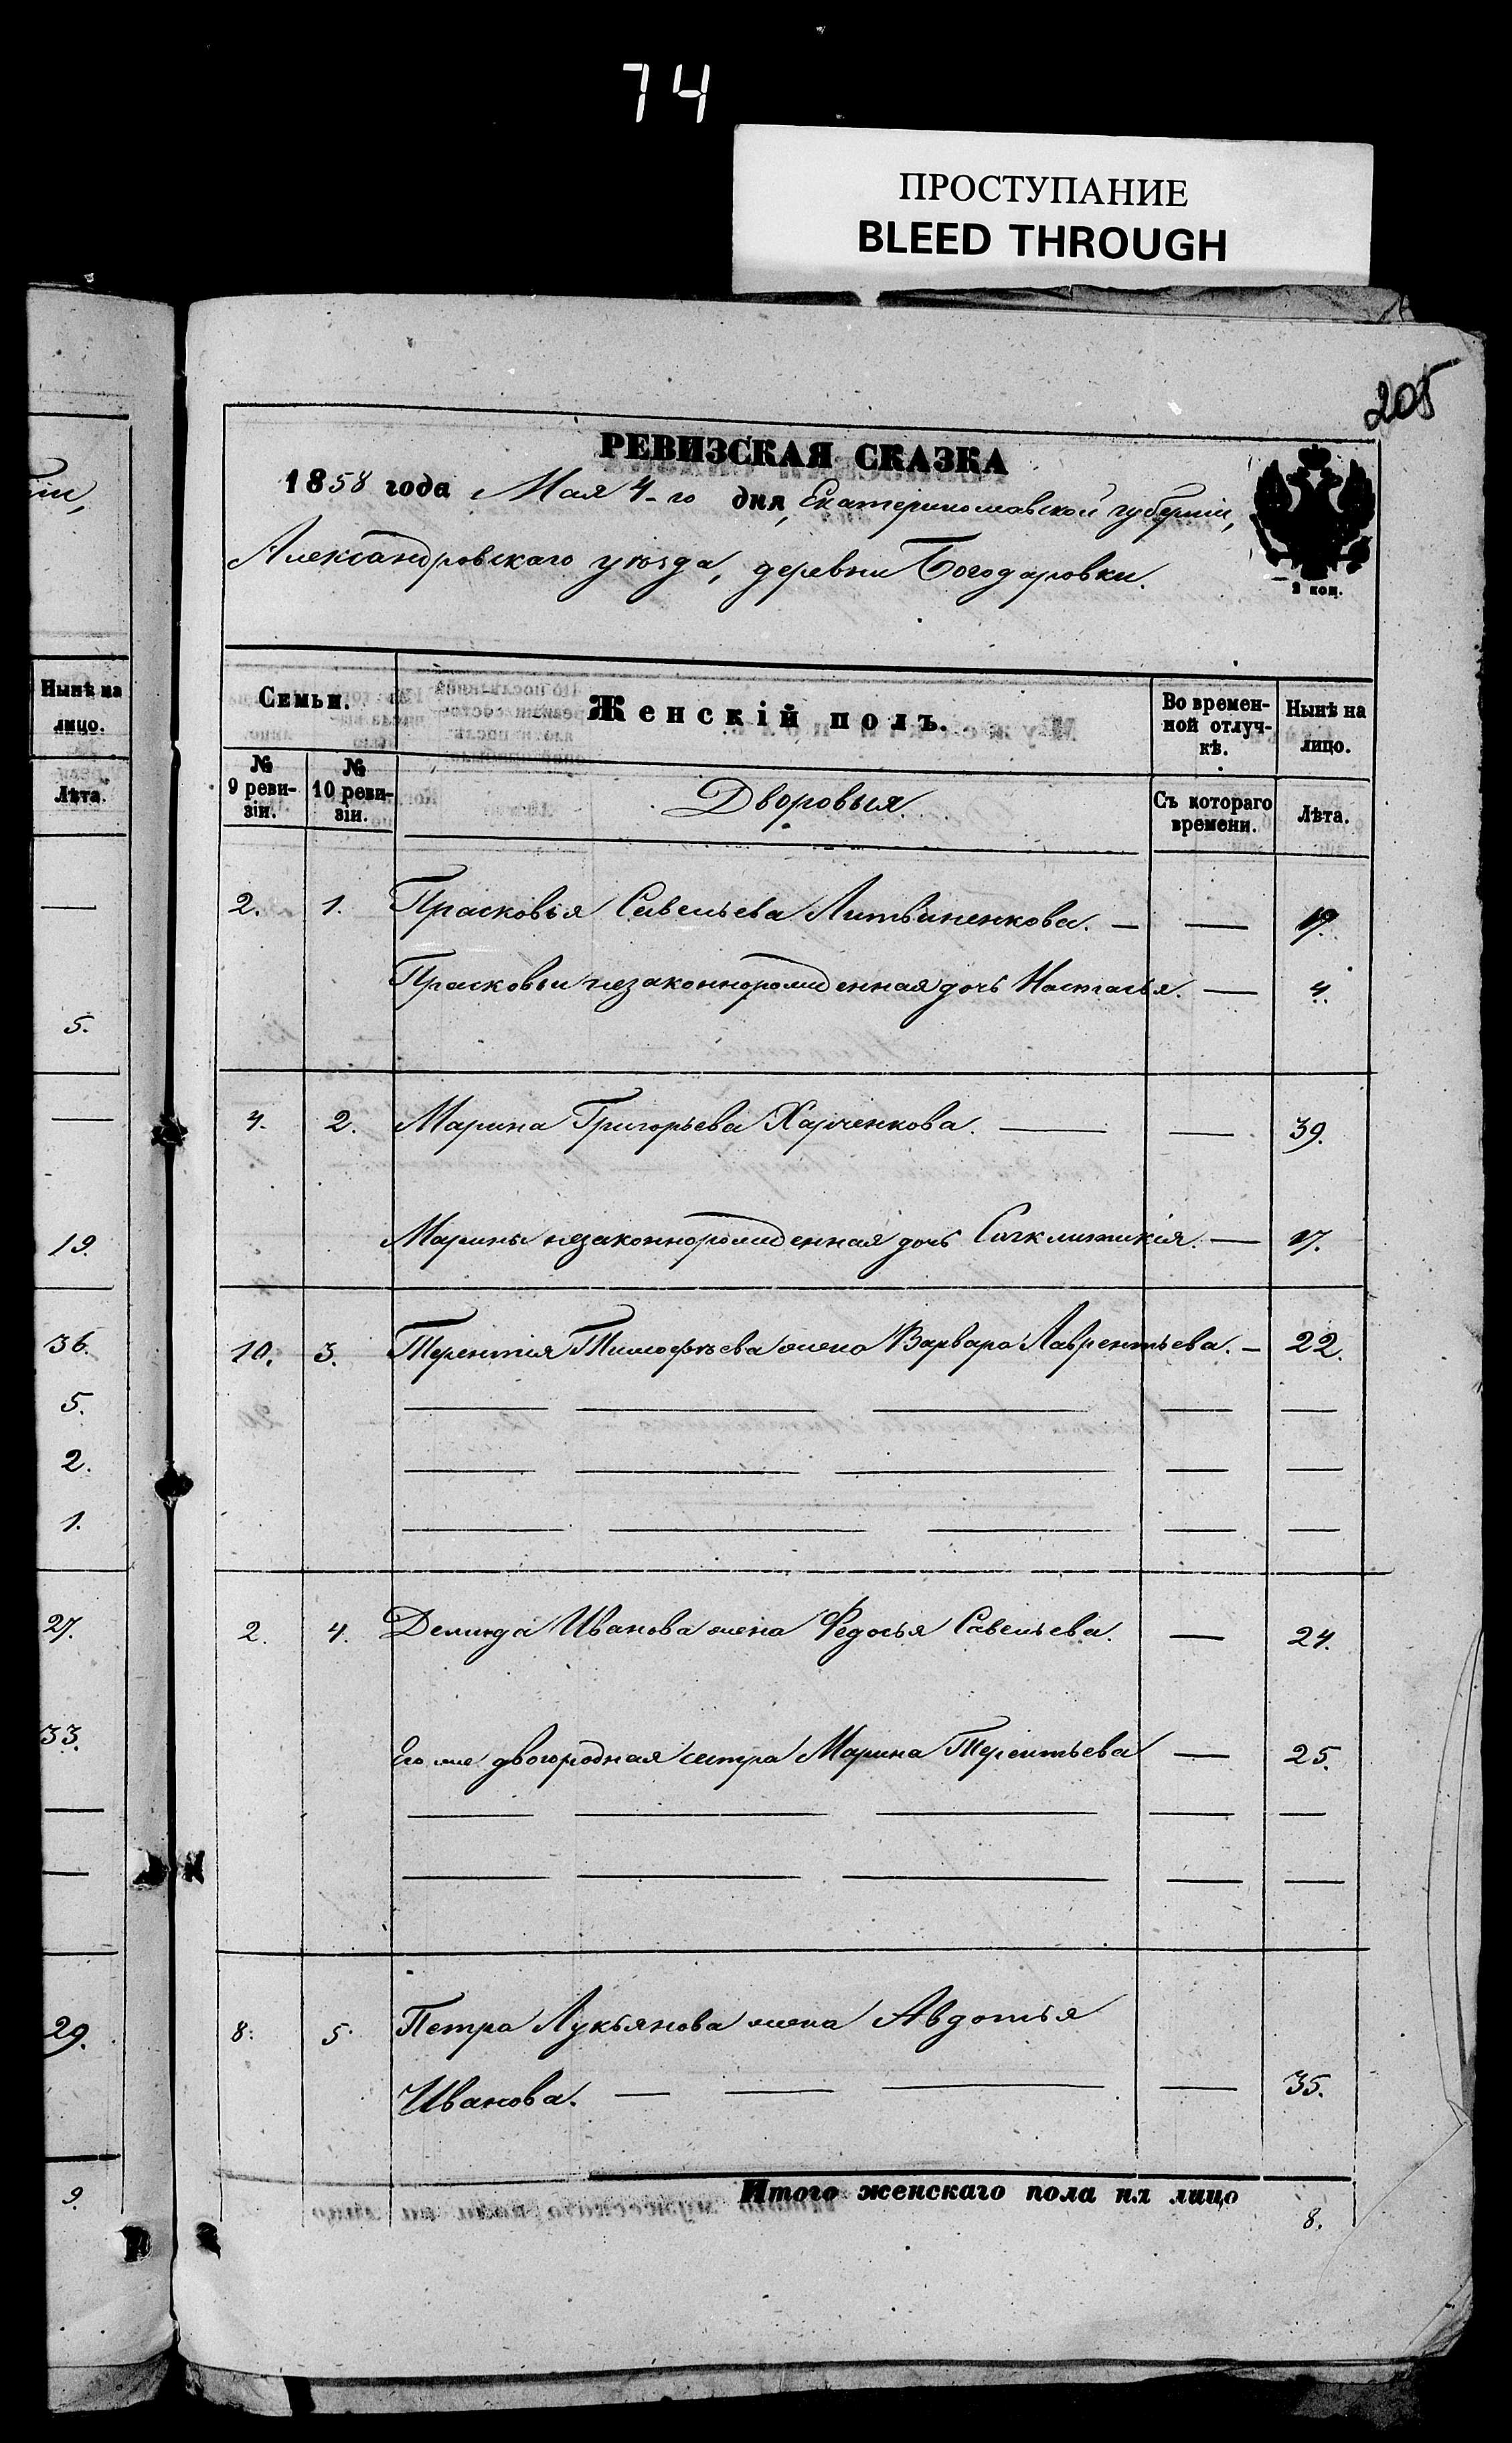 74
ПРОСТУПАНИЕ
BLEED THROUGH
205
РЕВИЗСКАЯ СКАЗКА
1858 года Мая 4-го дня, Екатеринославской губерніи,
Александровскаго уѣзда, деревни Богодаровки.
2 коп.
Семьи. Женскій полъ. Во времен-ной отлуч-кѣ. Нынѣ на лицо.
№ 9 реви-зіи. № 10 реви-зіи. Дворовыя. Съ котораго времени. Лѣта.
2. 1. Прасковья Савельева Литвиненкова. — — 19.
Прасковьи незаконнорожденная дочь Настасья. — 4.
4. 2. Марина Григорьева Харченкова. — — 39.
Марины незаконнорожденная дочь — 17.
10. 3. Терентія Тимофѣева жена Варвара Лаврентьева. — 22.
2. 4. Демида Иванова жена Федосья Савельева. — 24.
Его же двогородная сестра Марина Терентьева — 25.
8. 5. Петра Лукьянова жена Авдотья
Иванова. — — — — 35.
Итого женскаго пола на лицо 8.
Нынѣ на
лицо.
Лѣта.
5.
19.
36.
5.
2.
1.
27.
33.
29.
9.